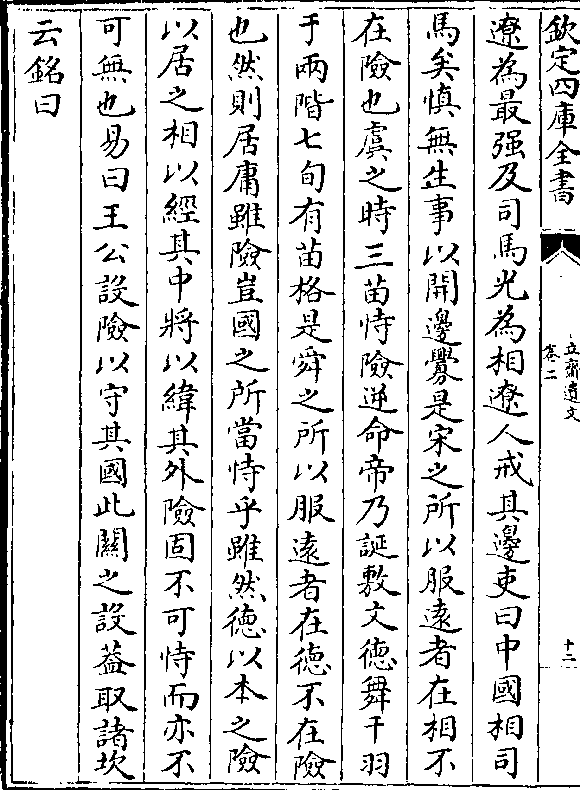 欽定四庫全書
立齋遺文
卷二
十二
遼為最强及司馬光為相遼人戒其邊吏曰中國相司
馬矣慎無生事以開邊釁是宋之所以服遠者在相不
在險也虞之時三苗恃險逆命帝乃誕敷文德舞干羽
于兩階七旬有苗格是舜之所以服遠者在德不在險
也然則居庸雖險豈國之所當恃乎雖然德以本之險
以居之相以經其中將以緯其外險固不可恃而亦不
可無也易曰王公設險以守其國此關之設葢取諸坎
云銘曰